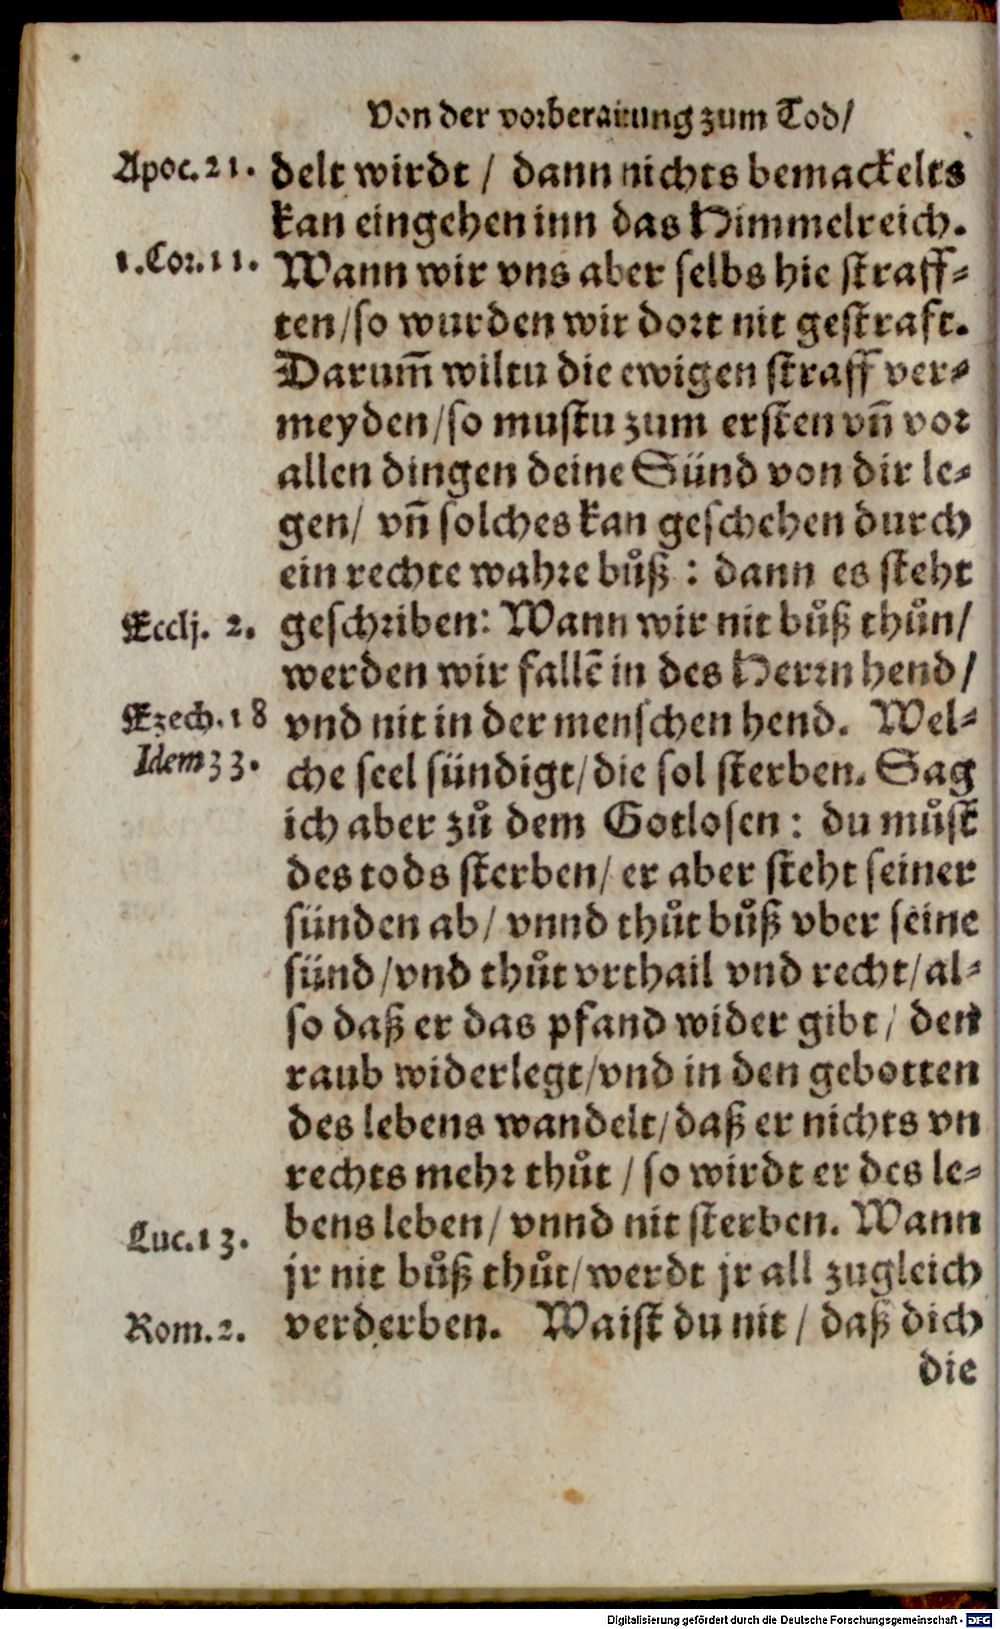 Von der vorberaitung zum Tod/
Apoc. 21. delt wirdt / dann nichts bemackelts
kan eingehen inn das Himmelreich.
1. Cor. 11. Wann wir vns aber selbs hie straff⸗
ten/so wurden wir dort nit gestraft.
Darum̃ wiltu die ewigen straff ver⸗
meyden/so mustu zum ersten vñ vor
allen dingen deine Sünd von dir le⸗
gen/ vñ solches kan geschehen durch
ein rechte wahre bůß : dann es steht
Ecclj. 2. geschriben: Wann wir nit bůß thůn/
werden wir fallẽ in des Herrn hend/
Ezech. 18 vnd nit in der menschen hend. Wel⸗
Idem 33. che seel sündigt/die sol sterben. Sag
ich aber zů dem Gotlosen : du můst
des tods sterben/ er aber steht seiner
sünden ab/ vnnd thůt bůß vber seine
sünd/vnd thůt vrthail vnd recht/al⸗
so daß er das pfand wider gibt/ den
raub widerlegt/vnd in den gebotten
des lebens wandelt/daß er nichts vn
rechts mehr thůt / so wirdt er des le⸗
bens leben/ vnnd nit sterben. Wann
Luc. 13. jr nit bůß thůt/werdt jr all zugleich
Rom. 2. verderben. Waist du nit / daß dich
die
Digitalisierung gefördert durch die Deutsche Forschungsgemeinschaft - DFG